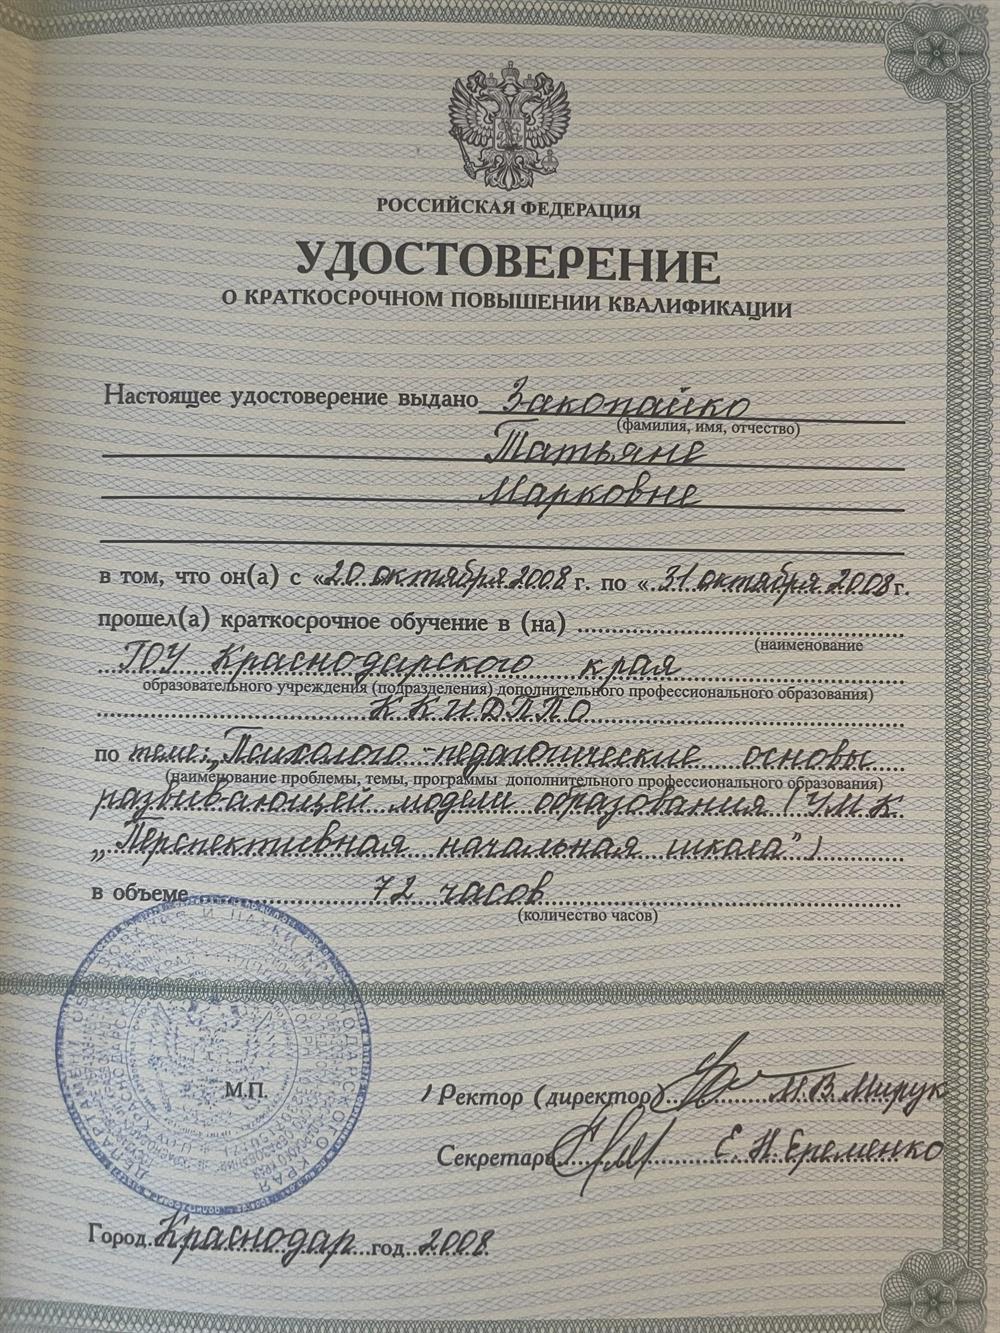 РОССИЙСКАЯ ФЕДЕРАЦИЯ
УДОСТОВЕРЕНИЕ
О КРАТКОСРОЧНОМ ПОВЫШЕНИИ КВАЛИФИКАЦИИ
Настоящее удостоверение выдано Закопайко
(фамилия, имя, отчество)
Татьяне
Марковне
в том, что он(а) с «20 октября 2008 г. по «31 октября 2008 г.
прошел(а) краткосрочное обучение в (на)
(наименование
ГОУ Краснодарского края
образовательного учреждения (подразделения) дополнительного профессионального образования)
ККИДППО
по теме: „Психолого-педагогические основы
(наименование проблемы, темы, программы дополнительного профессионального образования)
развивающей модели образования (УМК
„Перспективная начальная школа")
в объеме 72 часов
(количество часов)
М.П.
Ректор (директор) И.В. Мирук
Секретарь Е.Н. Еременко
Город Краснодар год 2008